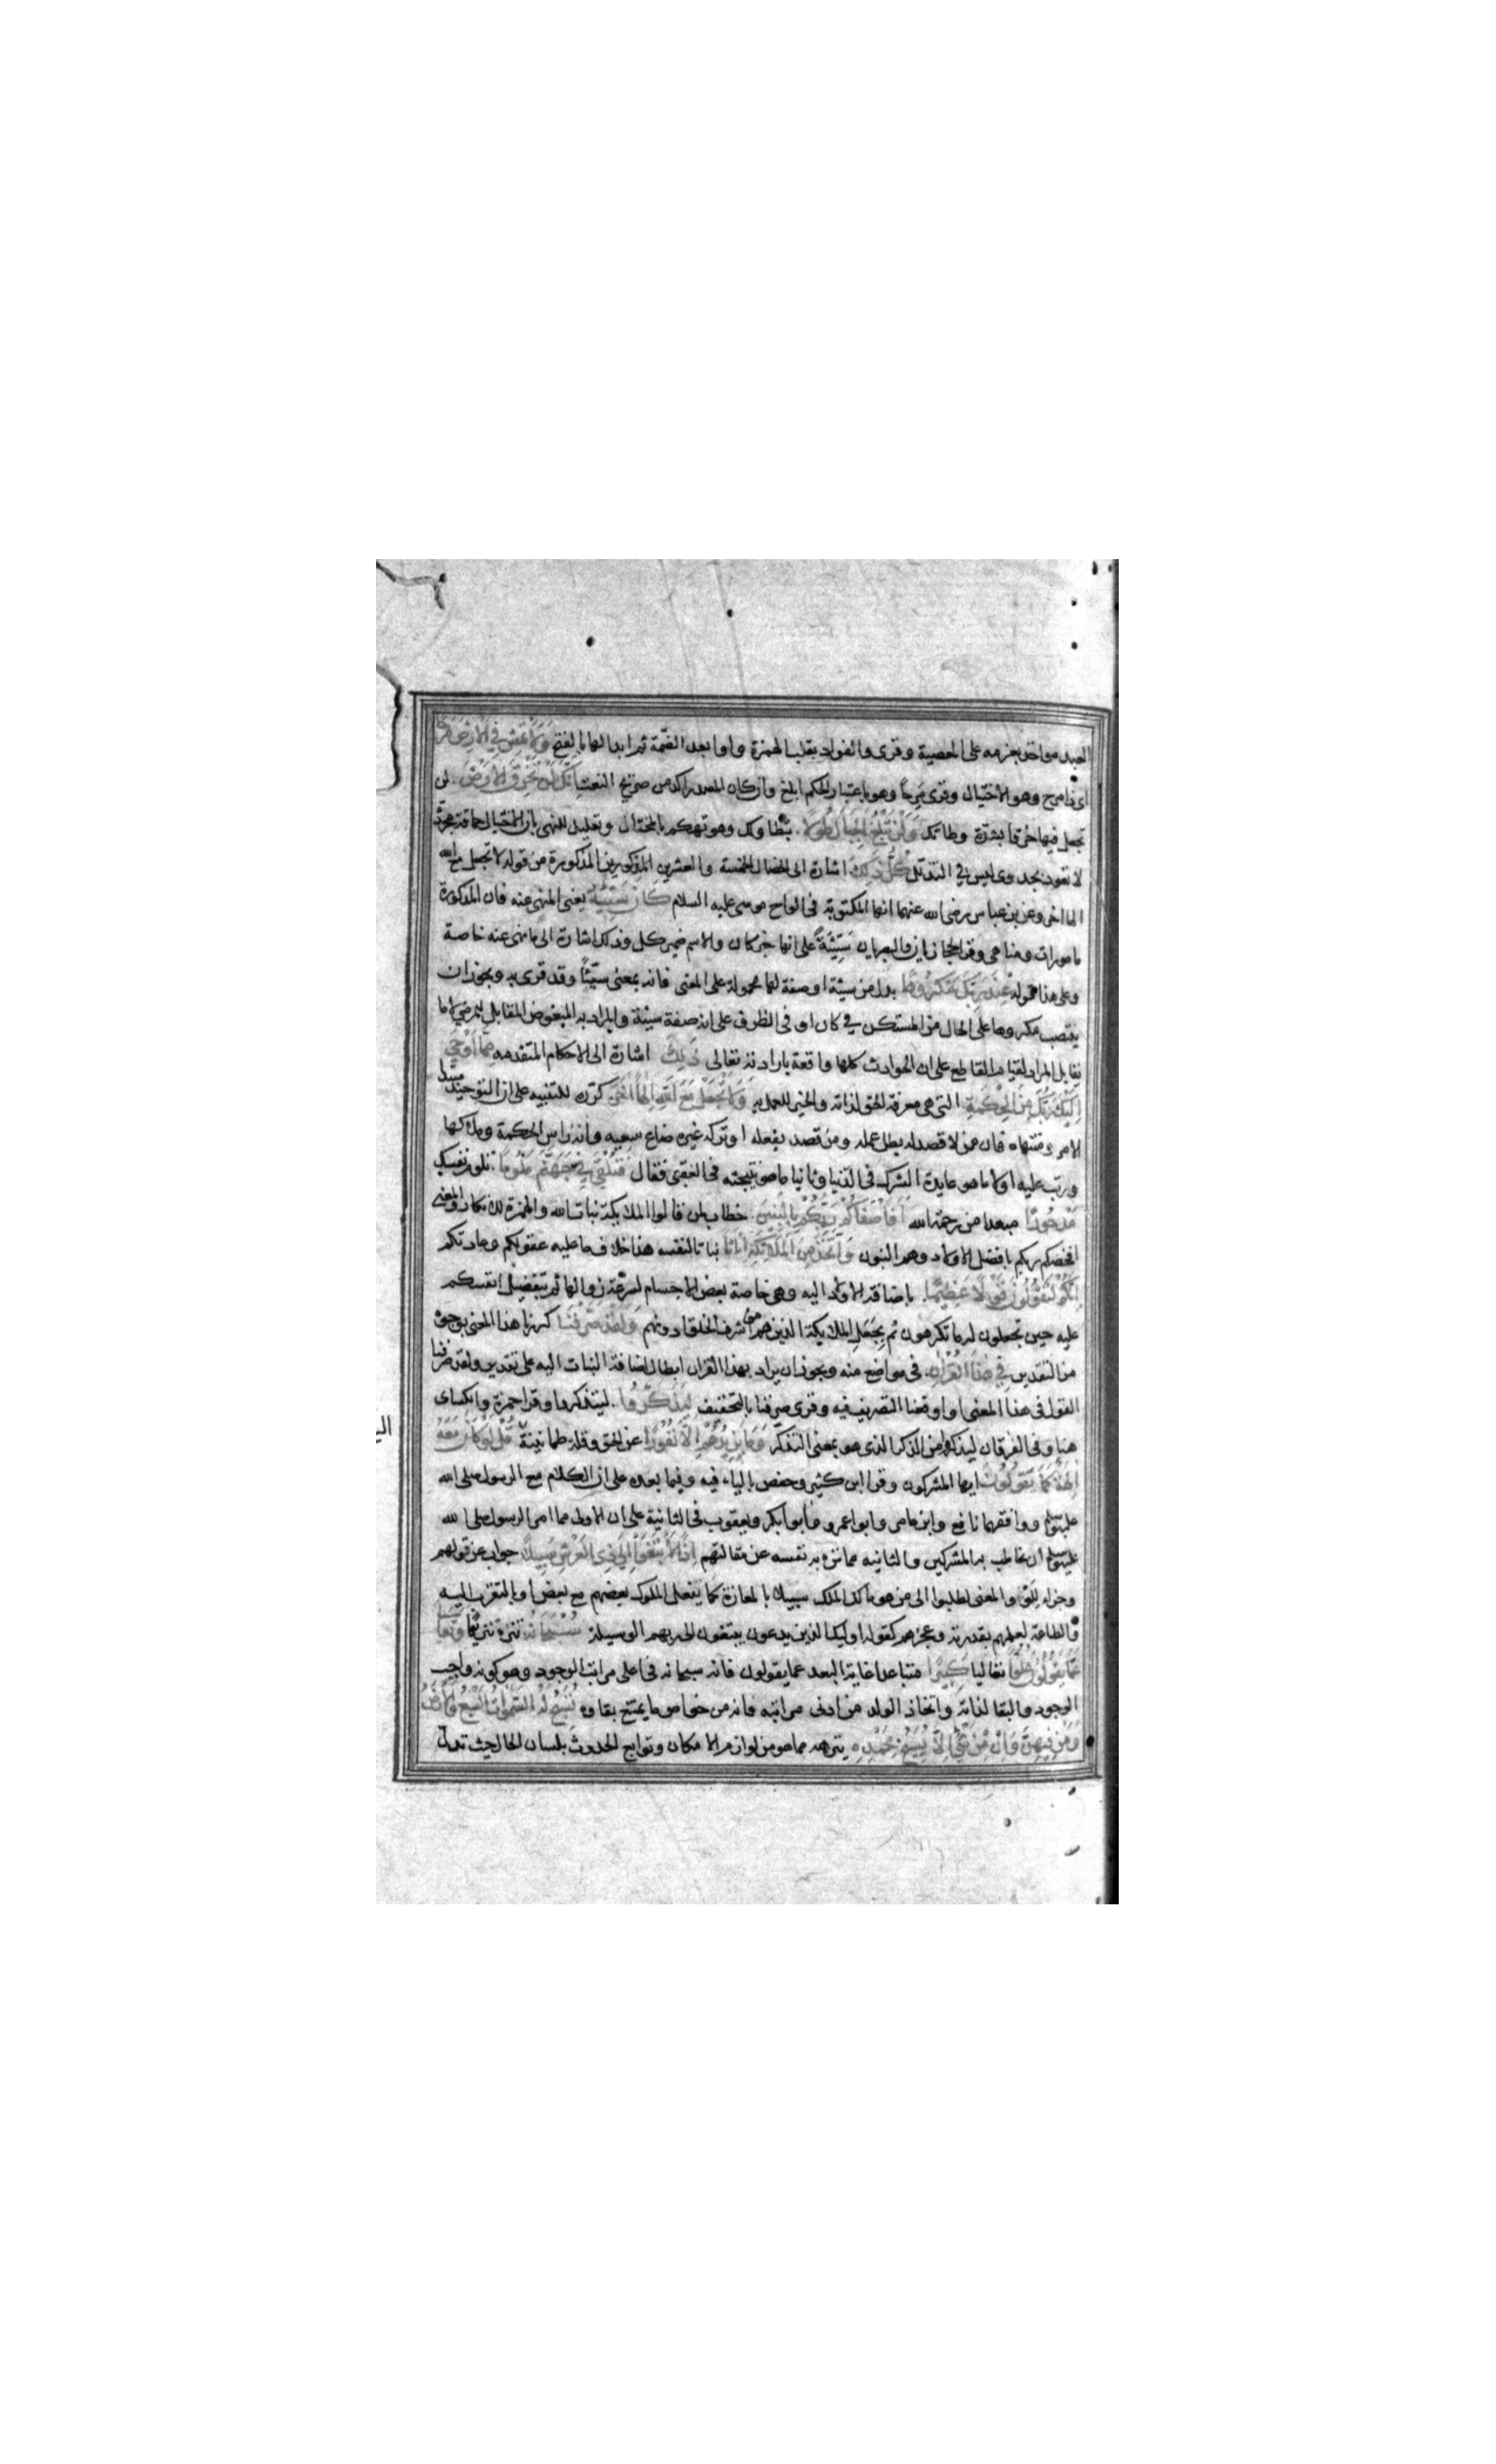 العبد مواخذ بعزمه على المعصية وقرى والفواد بقلب الهمزة واوا بعد الضمة ثم ابدالها بالفتح وَلَا تَمْشِ فِي الْأَرْضِ مَرَحًا
اى ذا مرح وهو الاختيال وقرى مَرِحاً وهو باعتبار الحكم ابلغ وان كان المصدر اكد من صريح النعت إِنَّكَ لَنْ تَخْرِقَ الْأَرْضَ. لن
تجعل فيها خرقا بشدّة وطاتك وَلَنْ تَبْلُغَ الْجِبَالَ طُولًا. بتطاولك وهو تهكم بالمختال وتعليل للنهى بان الاختيال حماقة مجرّدة
لا تعود بجدوى ليس في التذلل كُلُّ ذَلِكَ اشارة الى الخصال الخمسة والعشرين المذكورة من قوله لا تجعل مع الله
الها اخر وعن بن عباس رضى الله عنهما انها المكتوبة فى الواح موسى عليه السلام كَانَ سَيِّئُهُ يعنى المنهى عنه فان المذكورة
مامورات ومناهى وقرا الحجازيان والبصريان سَيِّئَةً على انها خبر كان والاسم ضمير كل وذلك اشارة الى ما نهى عنه خاصة
وعلى هذا قوله عِنْدَ رَبِّكَ مَكْرُوهًا بدل من سيئة او صفة لها محمولة على المعنى فانه بمعنى سيّئاً وقد قرى به ويجوز ان
ينتصب مكروها على الحال من المستكن في كان او فى الظرف على انه صفة سيئة والمراد به المبغوض المقابل للمرضى لا ما
يقابل المراد لقيام القاطع على ان الحوادث كلها واقعة بارادته تعالى ذَلِكَ اشارة الى الاحكام المتقدمه مِمَّا أَوْحَى
إِلَيْكَ رَبُّكَ مِنَ الْحِكْمَةِ التى هى معرفة الحق لذاته والخير للعمل به وَلَا تَجْعَلْ مَعَ اللهِ إِلَهًا آخَرَ كرّره للتنبيه على ان التوحيد مبتدا
الامر ومنتهاه فان من لا قصد له بطل عمله ومن قصد بفعله او تركه غيره ضاع سعيه وانه راس الحكمة وملاكها
ورتب عليه اولا ما هو عايدة الشرك فى الدنيا وثانيا ما هو نتيجته فى العقبى فقال فَتُلْقَى فِي جَهَنَّمَ مَلُومًا. تلوم نفسك
مَدْحُورًا مبعدا من رحمة الله أَفَأَصْفَاكُمْ رَبُّكُمْ بِالْبَنِينَ. خطاب لمن قالوا الملايكة بنات الله والهمزة للانكار والمعنى
افخصكم ربكم بافضل الاولاد وهم البنون وَاتَّخَذَ مِنَ الْمَلَائِكَةِ إِنَاثًا بناتا لنفسه هذا خلاف ما عليه عقولكم وعادتكم
إِنَّكُمْ لَتَقُولُونَ قَوْلًا عَظِيمًا. باضافة الاولاد اليه وهى خاصة بعض الاجسام لسرعة زوالها ثم بتفضيل انفسكم
عليه حين تجعلون له ما تكرهون ثم بجعل الملايكة الذين هم من اشرف الخلق ادونهم وَلَقَدْ صَرَّفْنَا كررنا هذا المعنى بوجوه
من التقدير فِي هَذَا الْقُرْآنِ. فى مواضع منه ويجوز ان يراد بهذا القران ابطال اضافة البنات اليه على تقدير ولقد صرفنا
القول فى هذا المعنى او اوقعنا التصريف فيه وقرى صرفنا بالتخفيف لِيَذَّكَّرُوا. ليتذكروا وقرا حمزة والكساى
هنا وفى الفرقان ليذكروا من الذكر الذى هو بمعنى التذكّر وَمَا يَزِيدُهُمْ إِلَّا نُفُورًا عن الحق وقلة طمانينة قُلْ لَوْ كَانَ مَعَهُ
آلِهَةٌ كَمَا تَقُولُونَ ايها المشركون وقرا ابن كثير وحفص بالياء فيه وفيما بعده على ان الكلام مع الرسول صلى الله
عليه وسلم ووافقهما نافع وابن عامر وابوا عمرو وابوا بكر ويعقوب فى الثانية على ان الاولى مما امر الرسول صلى الله
عليه وسلم ان يخاطب به المشركين والثانيه مما نزه به نفسه عن مقالتهم إِذًا لَابْتَغَوْا إِلَى ذِي الْعَرْشِ سَبِيلًا جواب عن قولهم
وجزاء للو والمعنى لطلبوا الى من هو مالك الملك سبيلا بالمعازة كما يفعل الملوك بعضهم مع بعض او بالتقرب اليه
والطاعة لعلمهم بقدرته وعجزهم كقوله اوليك الذين يدعون يبتغون الى ربهم الوسيلة سُبْحَانَهُ تنزه تنزيها وَتَعَالَى
عَمَّا يَقُولُونَ عُلُوًّا تعاليا كَبِيرًا متباعدا غاية البعد عما يقولون فانه سبحانه فى اعلى مراتب الوجود وهو كونه واجب
الوجود والبقا لذاته واتخاذ الولد من ادنى مراتبه فانه من خواص ما يمتنع بقاوه تُسَبِّحُ لَهُ السَّمَوَاتُ السَّبْعُ وَالْأَرْضُ
وَمَنْ فِيهِنَّ وَإِنْ مِنْ شَيْءٍ إِلَّا يُسَبِّحُ بِحَمْدِهِ ينزهه مما هو من لوازم الامكان وتوابع الحدوث بلسان الحال حيث تدل